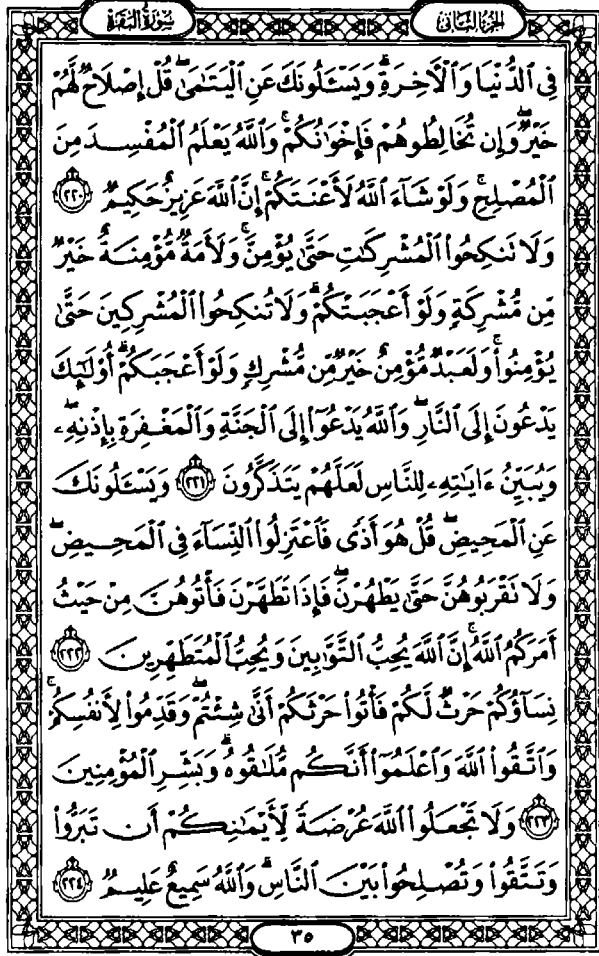 الجزء الثاني
سورة البقرة
فِي ٱلدُّنْيَا وَٱلْأَخِرَةِ ۗ وَيَسْـَٔلُونَكَ عَنِ ٱلْيَتَـٰمَىٰ ۖ قُلْ إِصْلَاحٌ لَّهُمْ
خَيْرٌ ۖ وَإِن تُخَالِطُوهُمْ فَإِخْوَٰنُكُمْ ۚ وَٱللَّهُ يَعْلَمُ ٱلْمُفْسِدَ مِنَ
ٱلْمُصْلِحِ ۚ وَلَوْ شَآءَ ٱللَّهُ لَأَعْنَتَكُمْ ۚ إِنَّ ٱللَّهَ عَزِيزٌ حَكِيمٌ ٢٢٠
وَلَا تَنكِحُوا۟ ٱلْمُشْرِكَـٰتِ حَتَّىٰ يُؤْمِنَّ ۚ وَلَأَمَةٌ مُّؤْمِنَةٌ خَيْرٌ
مِّن مُّشْرِكَةٍ وَلَوْ أَعْجَبَتْكُمْ ۗ وَلَا تُنكِحُوا۟ ٱلْمُشْرِكِينَ حَتَّىٰ
يُؤْمِنُوا۟ ۚ وَلَعَبْدٌ مُّؤْمِنٌ خَيْرٌ مِّن مُّشْرِكٍ وَلَوْ أَعْجَبَكُمْ ۗ أُو۟لَـٰٓئِكَ
يَدْعُونَ إِلَى ٱلنَّارِ ۖ وَٱللَّهُ يَدْعُوٓا۟ إِلَى ٱلْجَنَّةِ وَٱلْمَغْفِرَةِ بِإِذْنِهِۦ ۖ
وَيُبَيِّنُ ءَايَـٰتِهِۦ لِلنَّاسِ لَعَلَّهُمْ يَتَذَكَّرُونَ ٢٢١ وَيَسْـَٔلُونَكَ
عَنِ ٱلْمَحِيضِ ۖ قُلْ هُوَ أَذًى فَٱعْتَزِلُوا۟ ٱلنِّسَآءَ فِى ٱلْمَحِيضِ ۖ
وَلَا تَقْرَبُوهُنَّ حَتَّىٰ يَطْهُرْنَ ۖ فَإِذَا تَطَهَّرْنَ فَأْتُوهُنَّ مِنْ حَيْثُ
أَمَرَكُمُ ٱللَّهُ ۚ إِنَّ ٱللَّهَ يُحِبُّ ٱلتَّوَّٰبِينَ وَيُحِبُّ ٱلْمُتَطَهِّرِينَ ٢٢٢
نِسَآؤُكُمْ حَرْثٌ لَّكُمْ فَأْتُوا۟ حَرْثَكُمْ أَنَّىٰ شِئْتُمْ ۖ وَقَدِّمُوا۟ لِأَنفُسِكُمْ ۚ
وَٱتَّقُوا۟ ٱللَّهَ وَٱعْلَمُوٓا۟ أَنَّكُم مُّلَـٰقُوهُ ۗ وَبَشِّرِ ٱلْمُؤْمِنِينَ
٢٢٣ وَلَا تَجْعَلُوا۟ ٱللَّهَ عُرْضَةً لِّأَيْمَـٰنِكُمْ أَن تَبَرُّوا۟
وَتَتَّقُوا۟ وَتُصْلِحُوا۟ بَيْنَ ٱلنَّاسِ ۗ وَٱللَّهُ سَمِيعٌ عَلِيمٌ ٢٢٤
٣٥